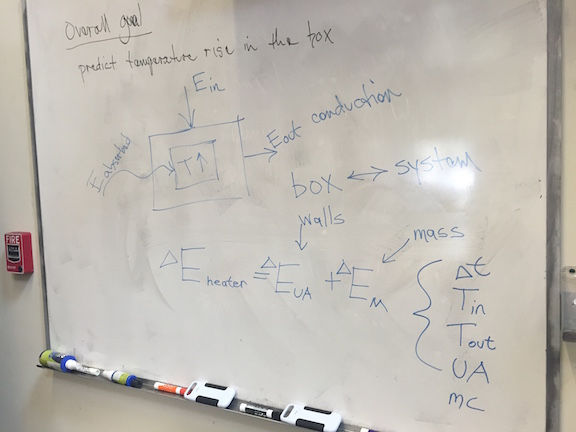 Overall goal
predict temperature rise in the box
Ein
Eout conduction
Eabsorbed
T↑
box ↔ system
walls
mass
ΔE heater = ΔE UA + ΔE M
Δt
Tin
Tout
UA
mc
FIRE